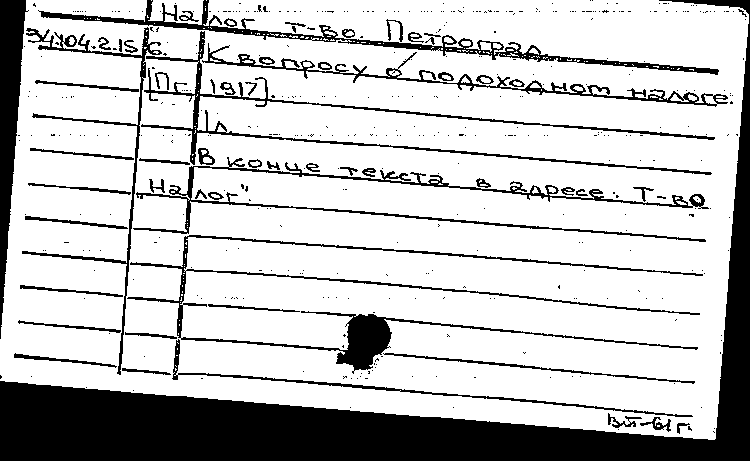 „Налог" т-во. Петроград.
Э/1104.2.15 6. К вопросу о подоходном налоге.
[Пг, 1917].
1л.
В конце текста в адресе: Т-во
„Налог".
ВП-61г.